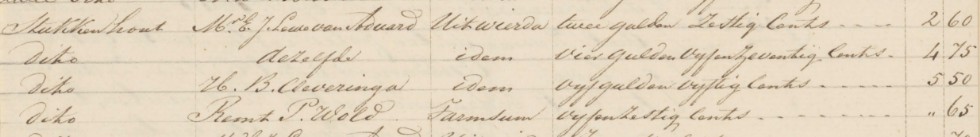 Stukken hout Mr. E. J. Lewe van Aduard Uitwierda twee gulden Zestig Cents 2 60
dito dezelfde idem vier gulden vyfenzeventig Cents 4 75
dito H. B. Cleveringa idem vyf gulden vyftig Cents 5 50
dito Remt P. Wold Farmsum vyfenzestig Cents " 65